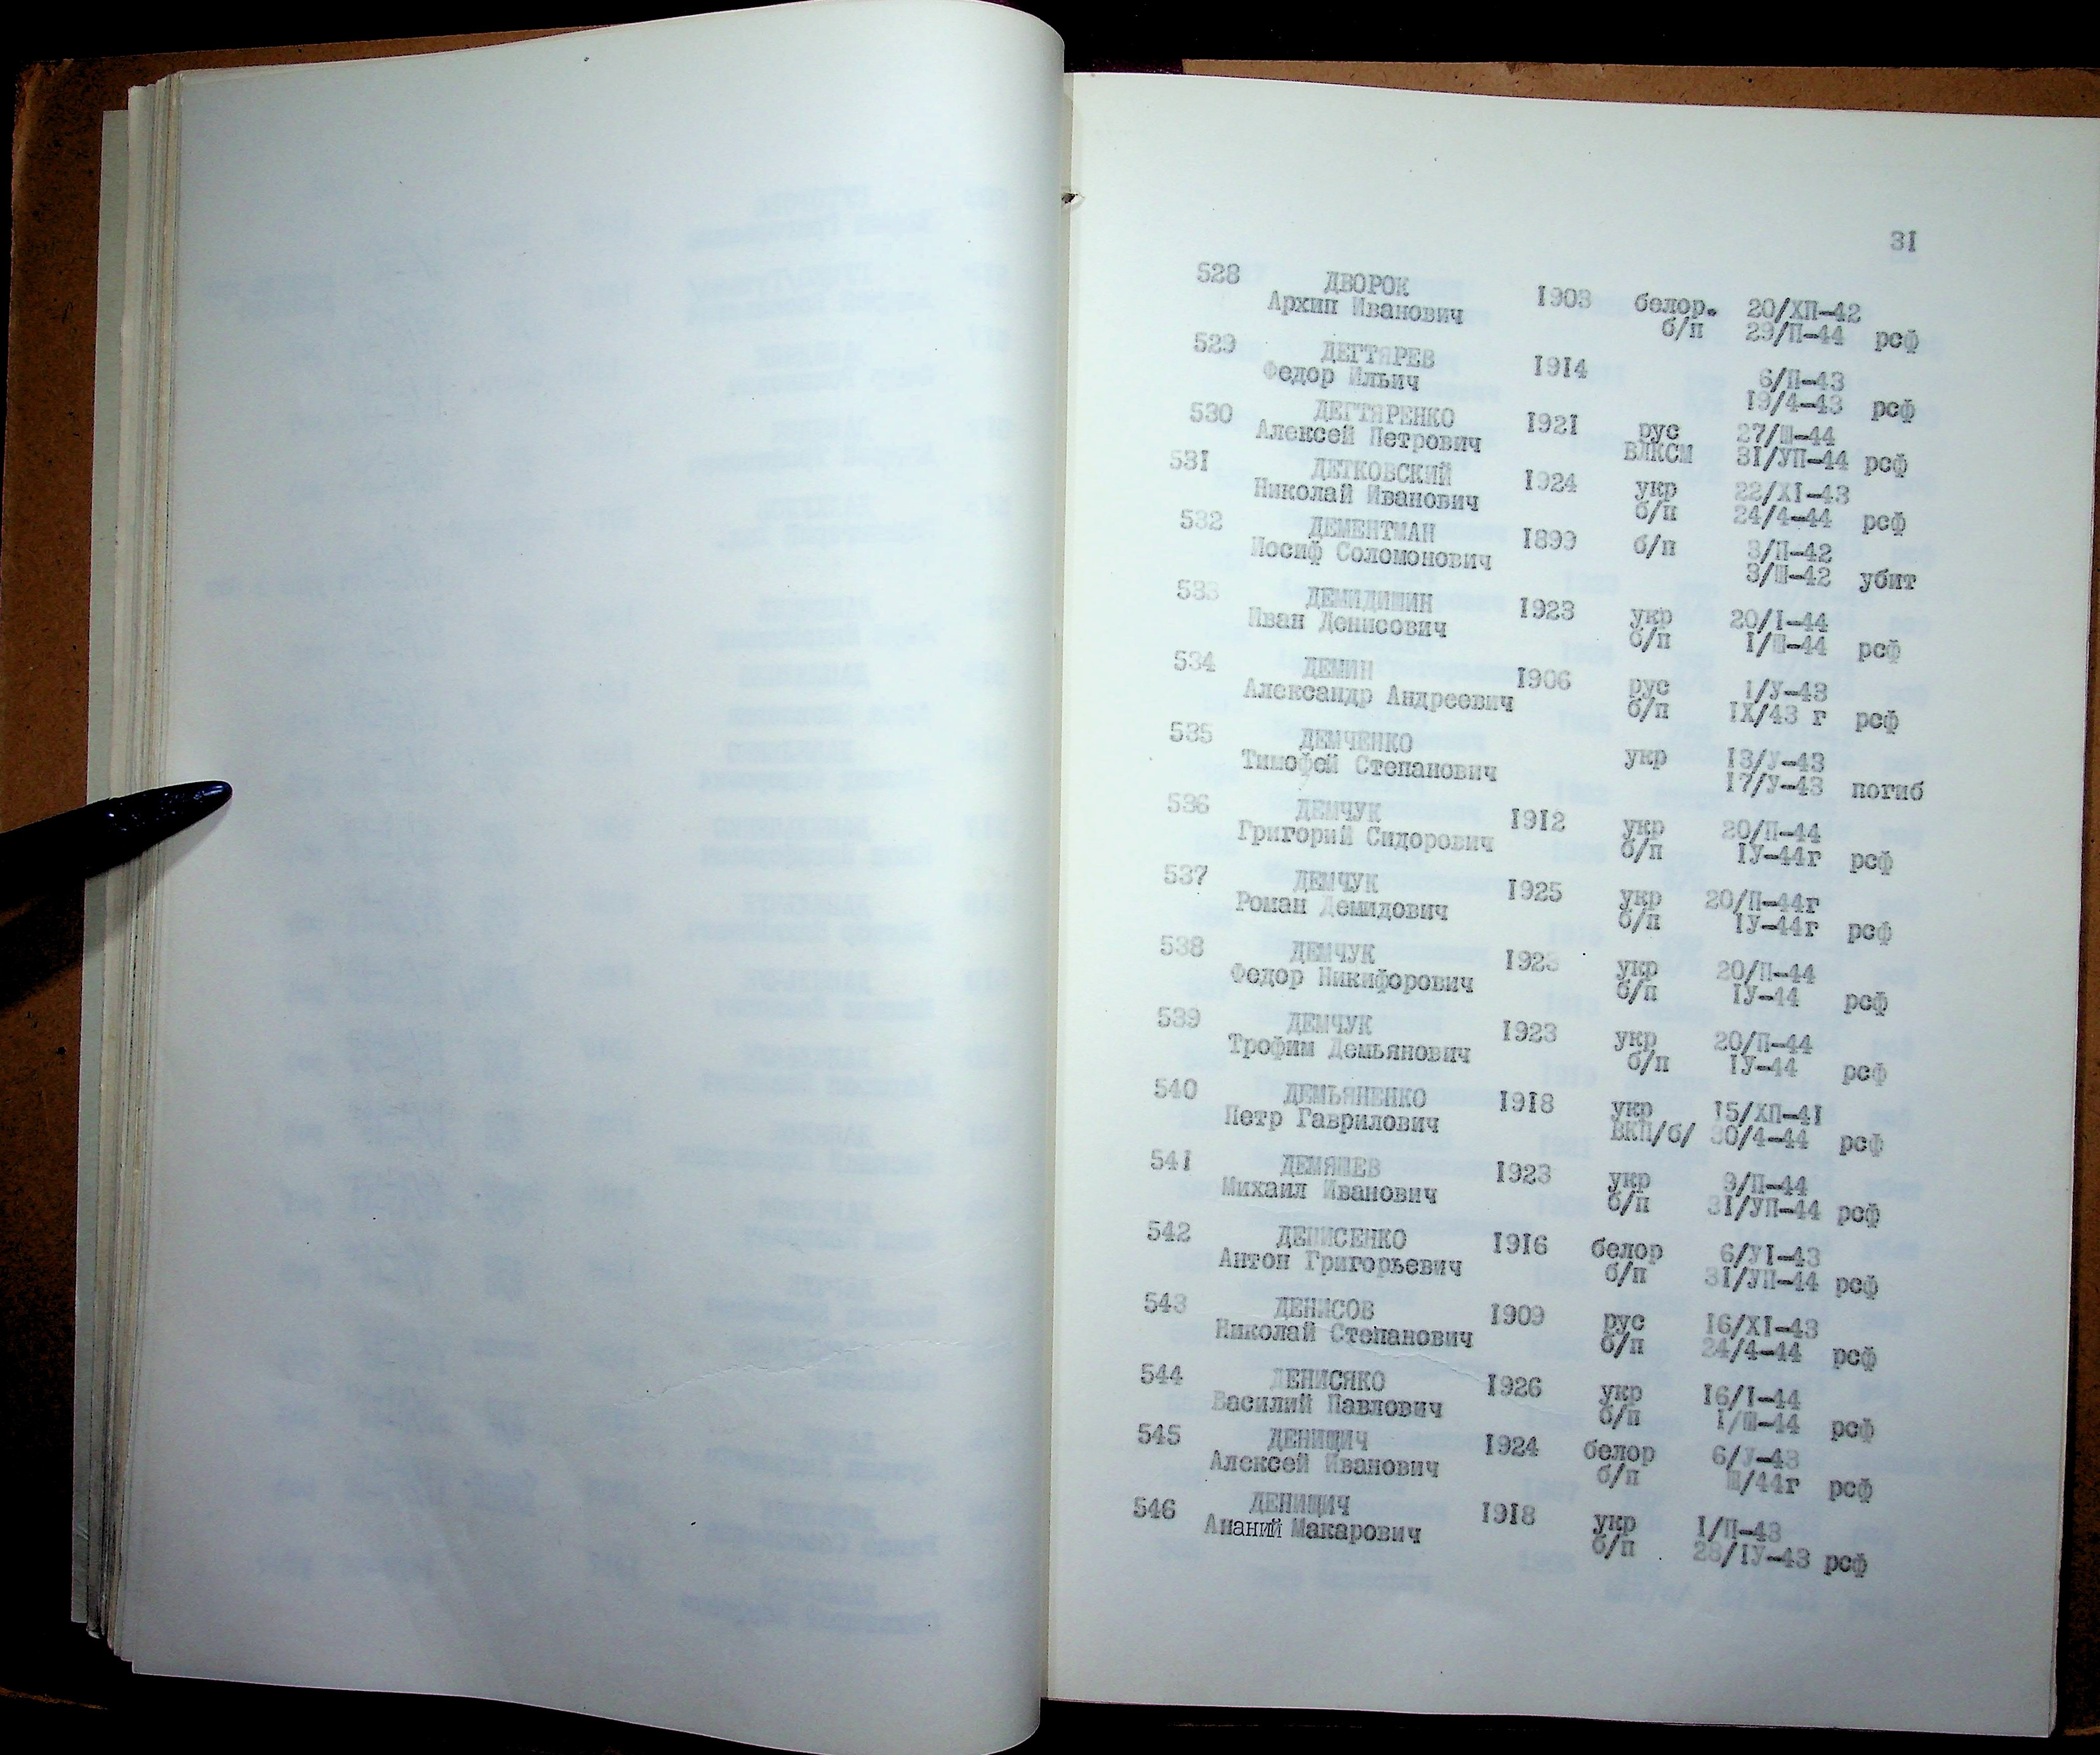 31
528 ДВОРОК 1903 белор. 20/ХП-42
Архип Иванович б/п 29/П-44 рсф
529 ДЕГТЯРЕВ 1914 6/П-43
Федор Ильич 19/4-43 рсф
530 ДЕГТЯРЕНКО 1921 рус 27/Ш-44
Алексей Петрович ВЛКСМ 31/УП-44 рсф
531 ДЕТКОВСКИЙ 1924 укр 22/XI-43
Николай Иванович б/п 24/4-44 рсф
532 ДЕМЕНТМАН 1899 б/п 3/П-42
Иосиф Соломонович 3/Ш-42 убит
533 ДЕМИДИШИН 1923 укр 20/I-44
Иван Денисович б/п I/Ш-44 рсф
534 ДЕМИН 1906 рус 1/У-43
Александр Андреевич б/п IX/43 г рсф
535 ДЕМЧЕНКО укр 13/У-43
Тимофей Степанович 17/У-43 погиб
536 ДЕМЧУК 1912 укр 20/П-44
Григорий Сидорович б/п IУ-44г рсф
537 ДЕМЧУК 1925 укр 20/П-44г
Роман Демидович б/п IУ-44г рсф
538 ДЕМЧУК 1923 укр 20/П-44
Федор Никифорович б/п IУ-44 рсф
539 ДЕМЧУК 1923 укр 20/П-44
Трофим Демьянович б/п IУ-44 рсф
540 ДЕМЬЯНЕНКО 1918 укр 15/ХП-41
Петр Гаврилович ВКП/б/ 30/4-44 рсф
541 ДЕМЯШЕВ 1923 укр 9/П-44
Михаил Иванович б/п 31/УП-44 рсф
542 ДЕНИСЕНКО 1916 белор 6/УI-43
Антон Григорьевич б/п 31/УП-44 рсф
543 ДЕНИСОВ 1909 рус 16/XI-43
Николай Степанович б/п 24/4-44 рсф
544 ДЕНИСЯКО 1926 укр 16/I-44
Василий Павлович б/п I/Ш-44 рсф
545 ДЕНИЩИЧ 1924 белор 6/У-43
Алексей Иванович б/п Ш/44г рсф
546 ДЕНИЩИЧ 1918 укр I/П-43
Ананий Макарович б/п 28/IУ-43 рсф